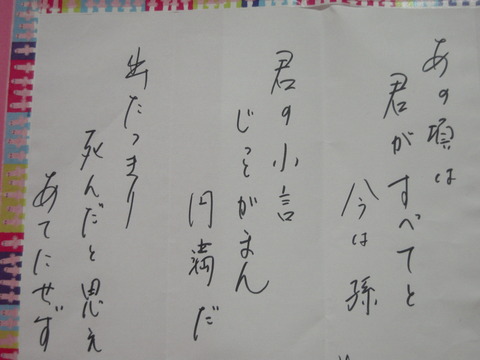 あの頃は
君がすべてと
今は孫
君の小言
じっとがまん
円満だ
出たっきり
死んだと思え
あてにせず